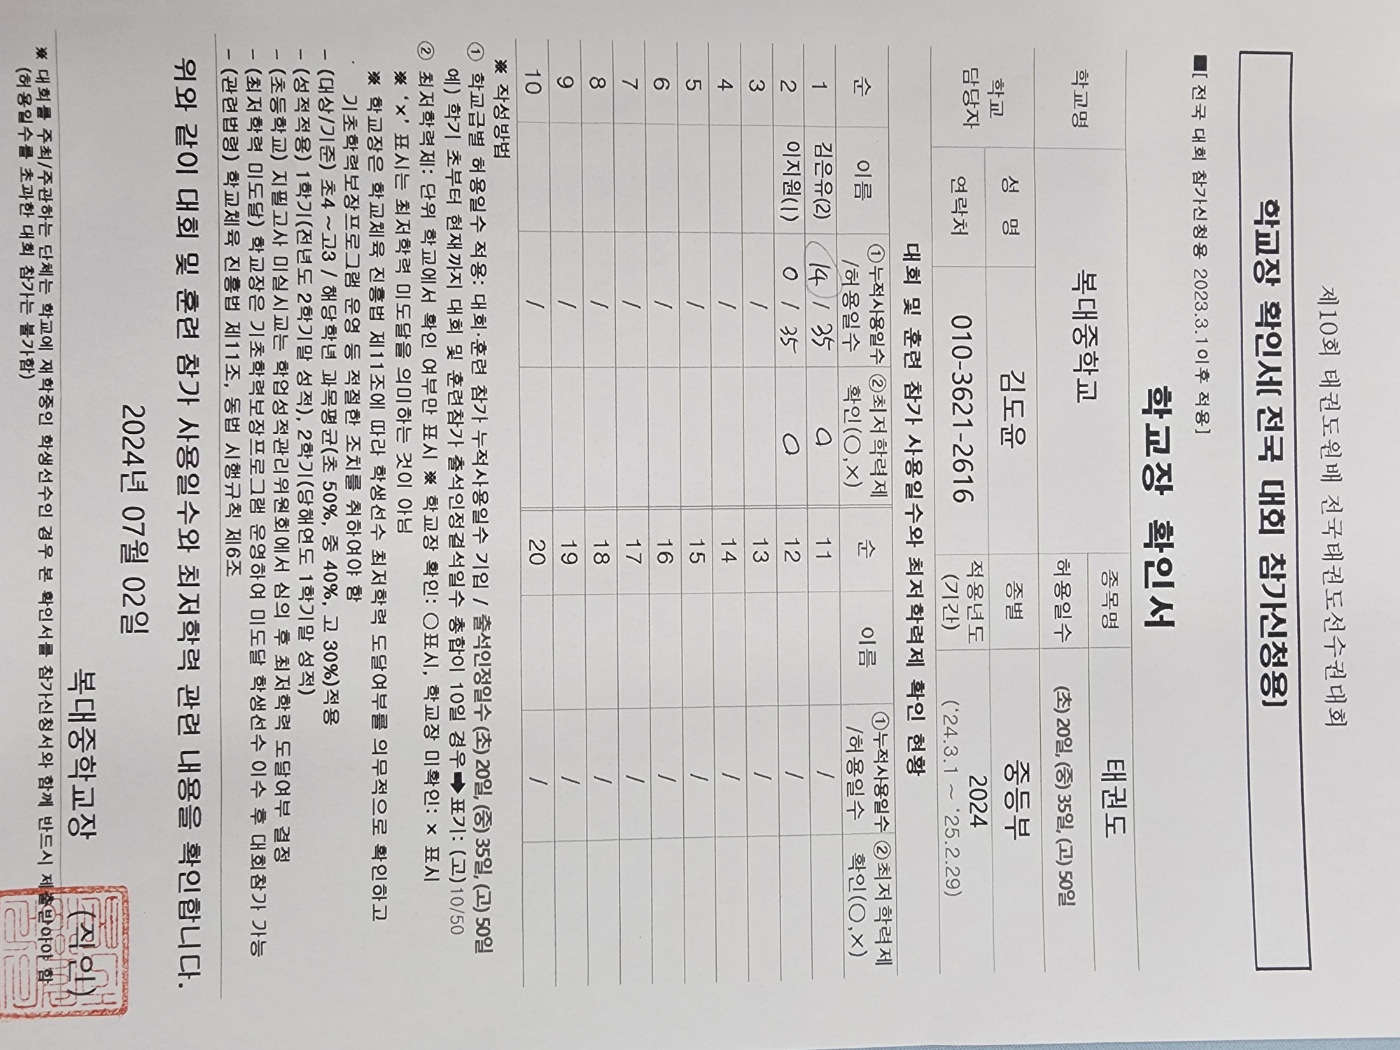 제10회 태권도원배 전국태권도선수권대회
학교장 확인서[ 전국 대회 참가신청용]
■[ 전국 대회 참가신청용 2023.3.1이후 적용]
학교장 확인서
학교명 복대중학교 종목명 태권도
허용일수 (초) 20일, (중) 35일, (고) 50일
학교 담당자 성 명 김도윤 종별 중등부
연락처 010-3621-2616 적용년도 (기간) 2024 ('24.3.1 ~ '25.2.29)
대회 및 훈련 참가 사용일수와 최저학력제 확인 현황
순 이름 ①누적사용일수 /허용일수 ②최저학력제 확인(○,×) 순 이름 ①누적사용일수 /허용일수 ②최저학력제 확인(○,×)
1 김은유(2) 14 / 35 ○ 11 /
2 이지원(1) 0 / 35 ○ 12 /
3 / 13 /
4 / 14 /
5 / 15 /
6 / 16 /
7 / 17 /
8 / 18 /
9 / 19 /
10 / 20 /
※ 작성방법
① 학교급별 허용일수 적용: 대회·훈련 참가 누적사용일수 기입 / 출석인정일수 (초) 20일, (중) 35일, (고) 50일
예) 학기 초부터 현재까지 대회 및 훈련참가 출석인정결석일수 총합이 10일 경우 ➡ 표기: (고) 10/50
② 최저학력제: 단위 학교에서 확인 여부만 표시 ※ 학교장 확인: ○표시, 학교장 미확인: × 표시
※ '×' 표시는 최저학력 미도달을 의미하는 것이 아님
※ 학교장은 학교체육 진흥법 제11조에 따라 학생선수 최저학력 도달여부를 의무적으로 확인하고
기초학력보장프로그램 운영 등 적절한 조치를 취하여야 함
- (대상/기준) 초4 ~ 고3 / 해당학년 과목평균(초 50%, 중 40%, 고 30%)적용
- (성적적용) 1학기(전년도 2학기말 성적), 2학기(당해연도 1학기말 성적)
- (초등학교) 지필고사 미실시교는 학업성적관리위원회에서 심의 후 최저학력 도달여부 결정
- (최저학력 미도달) 학교장은 기초학력보장프로그램 운영하여 미도달 학생선수 이수 후 대회참가 가능
- (관련법령) 학교체육 진흥법 제11조, 동법 시행규칙 제6조
위와 같이 대회 및 훈련 참가 사용일수와 최저학력 관련 내용을 확인합니다.
2024년 07월 02일
복대중학교장 (직인)
※ 대회를 주최/주관하는 단체는 학교에 재학중인 학생선수인 경우 본 확인서를 참가신청서와 함께 반드시 제출받아야 함
(허용일수를 초과한 대회 참가는 불가함)